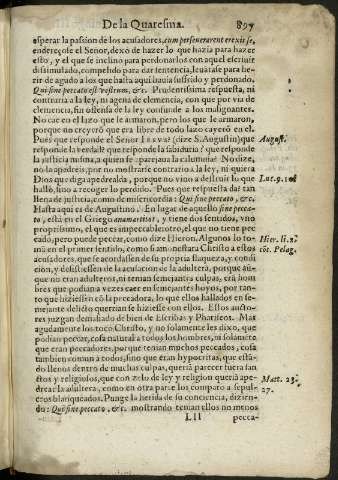 De la Quaresma. 897
esperar la passion de los acusadores, cum perseverarent erexit se,
endereçose el Señor, dexò de hazer lo que hazia para hazer
esto, y el que se inclino para perdonarlos con aquel escriuir
dissimulado, compelido para dar sentencia, leuãtase para he-
rir de agudo a los que hasta aqui hauia sufrido y perdonado.
Qui sine peccato est vestrum, &c. Prudentissima respuesta, ni
contraria a la ley, ni agena de clemencia, con que por via de
clemencia, sin ofensa de la ley confunde a los malignantes.
No cae en el lazo que le armaron, pero los que le armaron,
porque no creyerõ que era libre de todo lazo cayerõ en el.
Pues que responde el Senor IESVS? (dize S. Augustin) que August.
responde la verdad? que responde la sabiduria? que responde
la justicia misma, a quien se aparejaua la calumnia? No dize,
no la apedreis, por no mostrarse contrario a la ley, ni quiera
Dios que diga apedrealda, porque no vino a destruir lo que Luc. 9.
hallò, sino a recoger lo perdido. Pues que respuesta da? tan
llena de justicia, como de misericordia: Qui sine peccato, &c.
Hasta aqui es de Augustino. En lugar de aquello sine pecca-
to, està en el Griego anamartitos, y tiene dos sentidos, vno
propriissimo, el que es impeccable; otro, el que no tiene pec
cado, pero puede pecar, como dize Hieron. Algunos lo to- Hier. li. 2.
mã en el primer sentido, como si amonestara Christo a estos cõt. Pelag.
acusadores, que se acordassen de su propria flaqueza, y condi
cion, y desistiessen de la acusacion de la adultera, porque aũ-
que no eran adulteros, ni tenian semejantes culpas, erã hom
bres que podian a vezes caer en semejantes hoyos, por tan-
to que hiziessen cõ la pecadora, lo que ellos hallados en se-
mejante delicto querrian se hiziesse con ellos. Estos auto-
res juzgan demasiado de bien de Escribas y Phariseos. Mas
agudamente los tocò Christo, y no solamente les dixo, que
podian peccar, cosa natural a todos los hombres, ni solamẽte
que eran peccadores, porque tenian muchos peccados, cosa
tambien comun a todos, sino que eran hypocritas, que estã-
do llenos dentro de muchas culpas, querià parecer fuera san
ctos y religiosos, que con zelo de ley y religion querià ape-
drear la adultera, como en otra parte los comparò a sepul- Matt. 23.
cros blanqueados. Punge la herida de su conciencia, dizien- 27.
do: Qui sine peccato, &c. mostrando tenian ellos no menos
Lll pecca-